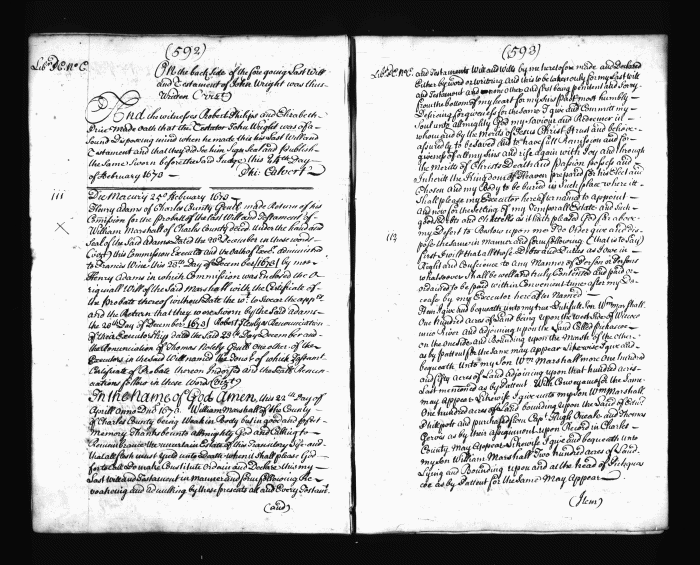 (592)
Lib. I.C. No. C.
On the back side of the fore going Last Will
and Testament of John Wright was thus
Written (Vizt)
And the witnesses Robert Philips and Elizabeth
Price made oath that the Testator John Wright was of a
Sound Disposing mind when he made this his Last Will and
Testament and that they did See him Sign Seal and publish
the Same Sworn before the Said Judge this 24th Day
of February 1673 Phi: Calvert
111
Die Mercurij 25o February 1673
Henry Adams of Charles County Gentl made Return of his
Comission for the probate of the Last Will and Testament of
William Marshall of Charles County deced under the hand and
Seal of the Said Adams Dated the 20th December in these words
(Vizt) this Commission Executed and the Oath of Exectr administred
to Francis Wine this 20th Day of December 1673 by mee
Henry Adams in which Commission was Enclosed the O
riginall Will of the Said Marshall with the Certificate of
the Probate thereof without Date the
and the Return that they were sworn by the Said Adams
the 20th Day of December 1673 Robert Renunciation
of the Executorship Dated the Said 20th Day December and
the Renunciation of Thomas one other of the
Executors in the Said Will named the Tenor of which Testamt
Certificate of Probate thereon Indorsed and the Renun
ciations follow in these Words (Vizt)
In the Name of God Amen, this 22th Day of
Aprill anno Dni 1673 William Marshall of the County
of Charles County being Weak in Body but in good and perfect
Memory Thanks be unto almighty God and Calling to
Remembrance the uncertain Estate of this Transitory Life and
that all flesh must Yeild unto Death when it Shall please God
for to Call Do make Constitute Ordain and Declare this my
Last Will and Testament in Manner and form following Re
voaking and anulling by these presents all and Every Testamt
(and)
(593)
Lib. I.C. No. C.
and Testaments Will and Wills by me heretofore made and Declared
Either by word or writing and this to be taken only for my Last Will
and Testament and none other and first being penitent and Sorry
from the bottom of my heart for my Sins past most humbly
Desiring forgiveness for the same I give and Committ my
Soul unto almighty God my Saviour and Redeemer in
whom and by the Merits of Jesus Christ I trust and believe
assuredly to be saved and to have full Remission and for
giveness of all my Sins and rise again with Joy and through
the Merits of Christs Death and Passion possess and
Inherit the Kingdom of Heaven prepared for his Elect and
Chosen and my Body to be buried in Such place where it
Shall please my Executor hereafter named to appoint
and now for the Setting of my Temporall Estate and Such
goods Debts and Chattels as it hath pleased God far above
my Desert to Bestow upon mee I do Order give and Dis
pose the same in Manner and form following (that is to say)
first I will that all those Debts and Dues as I owe in
Right and Conscience to any Manner of Person or Persons
whatsoever Shall be well and truly Contented and paid or
ordained to be paid within Convenient time after my De
cease by my Executor hereafter Named
Item I give and bequeath unto my true Son Wm Marshall
One hundred acres of Land being upon the West Side of
River and adjoyning upon the Land Called
on the one Side and Bounding upon the Mouth of the other
as by Pattent for the same may appear Likewise I give and
bequeath unto my Son Wm Marshall more One hundred
and fifty acres of Land adjoyning upon that hundred acres
Last mentioned as by Pattent Will Conveyance for the Same
may appear Likewise I give unto my Son Wm Marshall
One hundred acres of Land bounding upon the Land of Edwd
Philpott and purchased from Capt Hugh Oneale and Thomas
Gervis as by their assignment upon Record in Charles
County may Appear Likewise I give and bequeath unto
my Son William Marshall Two hundred acres of Land
Lying and Bounding upon and at the head of
as by Pattent for the Same May Appear
(Item)
113